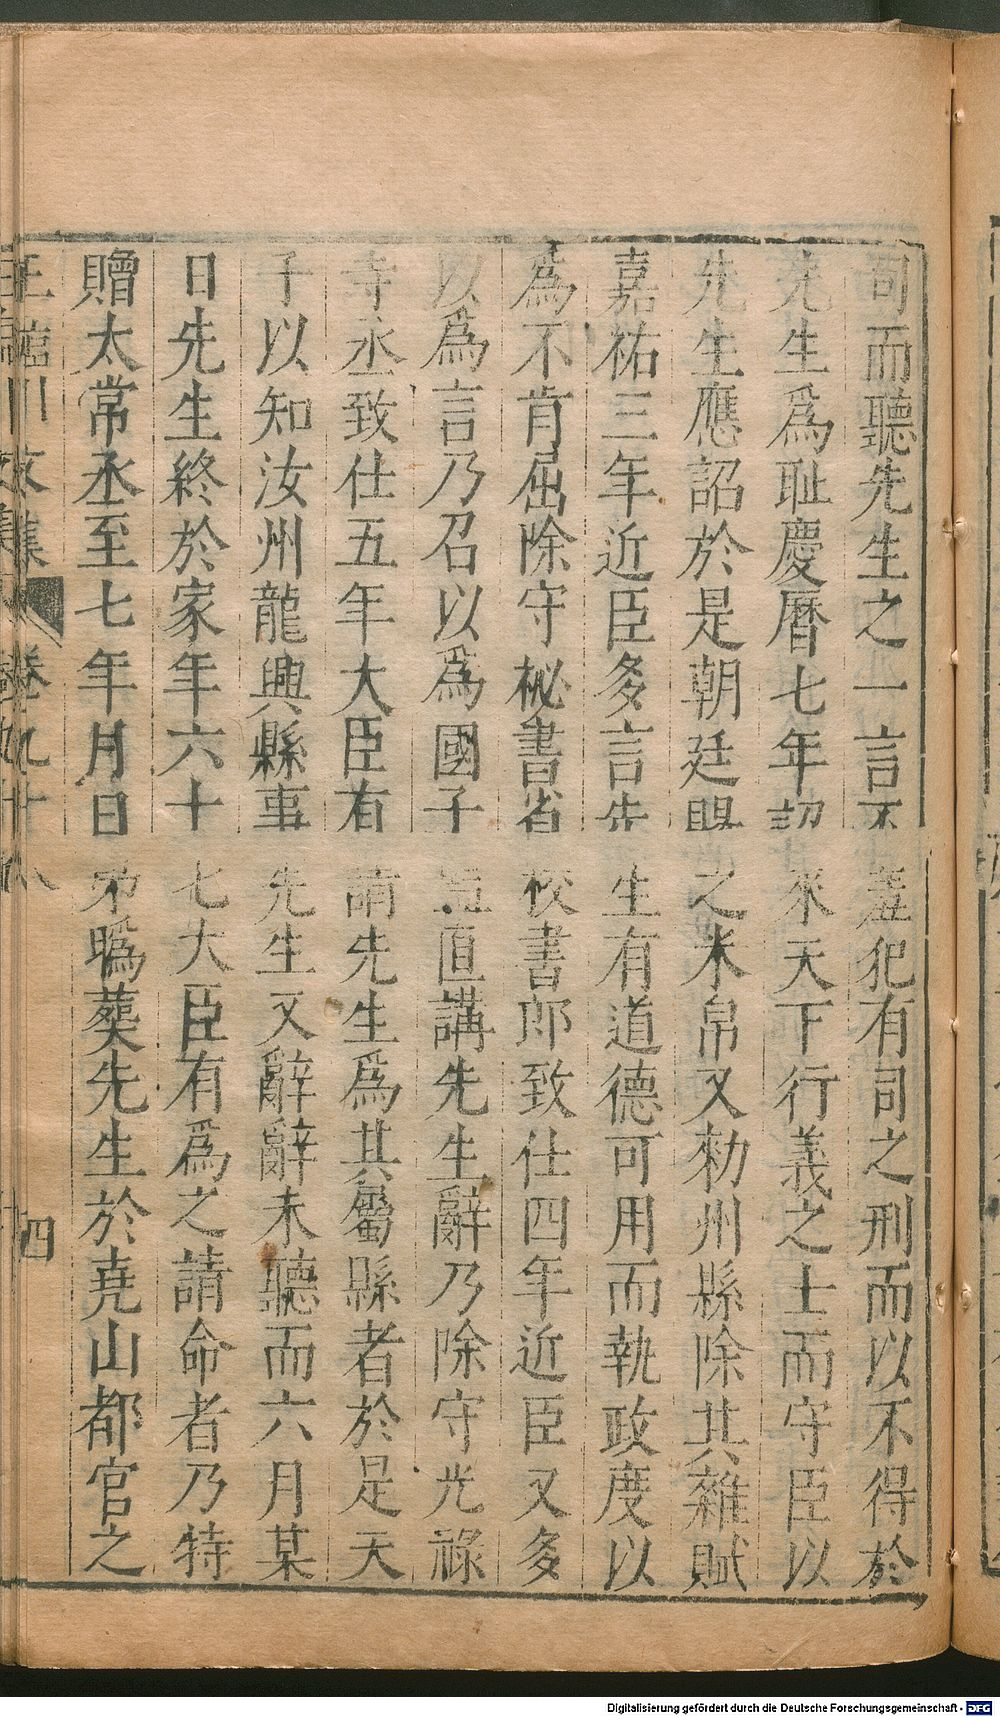 司而聽先生之一言不羞犯有司之刑而以不得於
先生爲耻慶曆七年詔求天下行義之士而守臣以
先生應詔於是朝廷賜之米帛又勑州縣除其雜賦
嘉祐三年近臣多言先生有道德可用而執政度以
爲不肯屈除守秘書省校書郎致仕四年近臣又多
以爲言乃召以爲國子監直講先生辭乃除守光祿
寺丞致仕五年大臣有請先生爲其屬縣者於是天
子以知汝州龍興縣事先生又辭辭未聽而六月某
日先生終於家年六十七大臣有爲之請命者乃特
贈太常丞至七年月日弟㬙葬先生於堯山都官之
王臨川文集 卷九十八 四
Digitalisierung gefördert durch die Deutsche Forschungsgemeinschaft - DFG